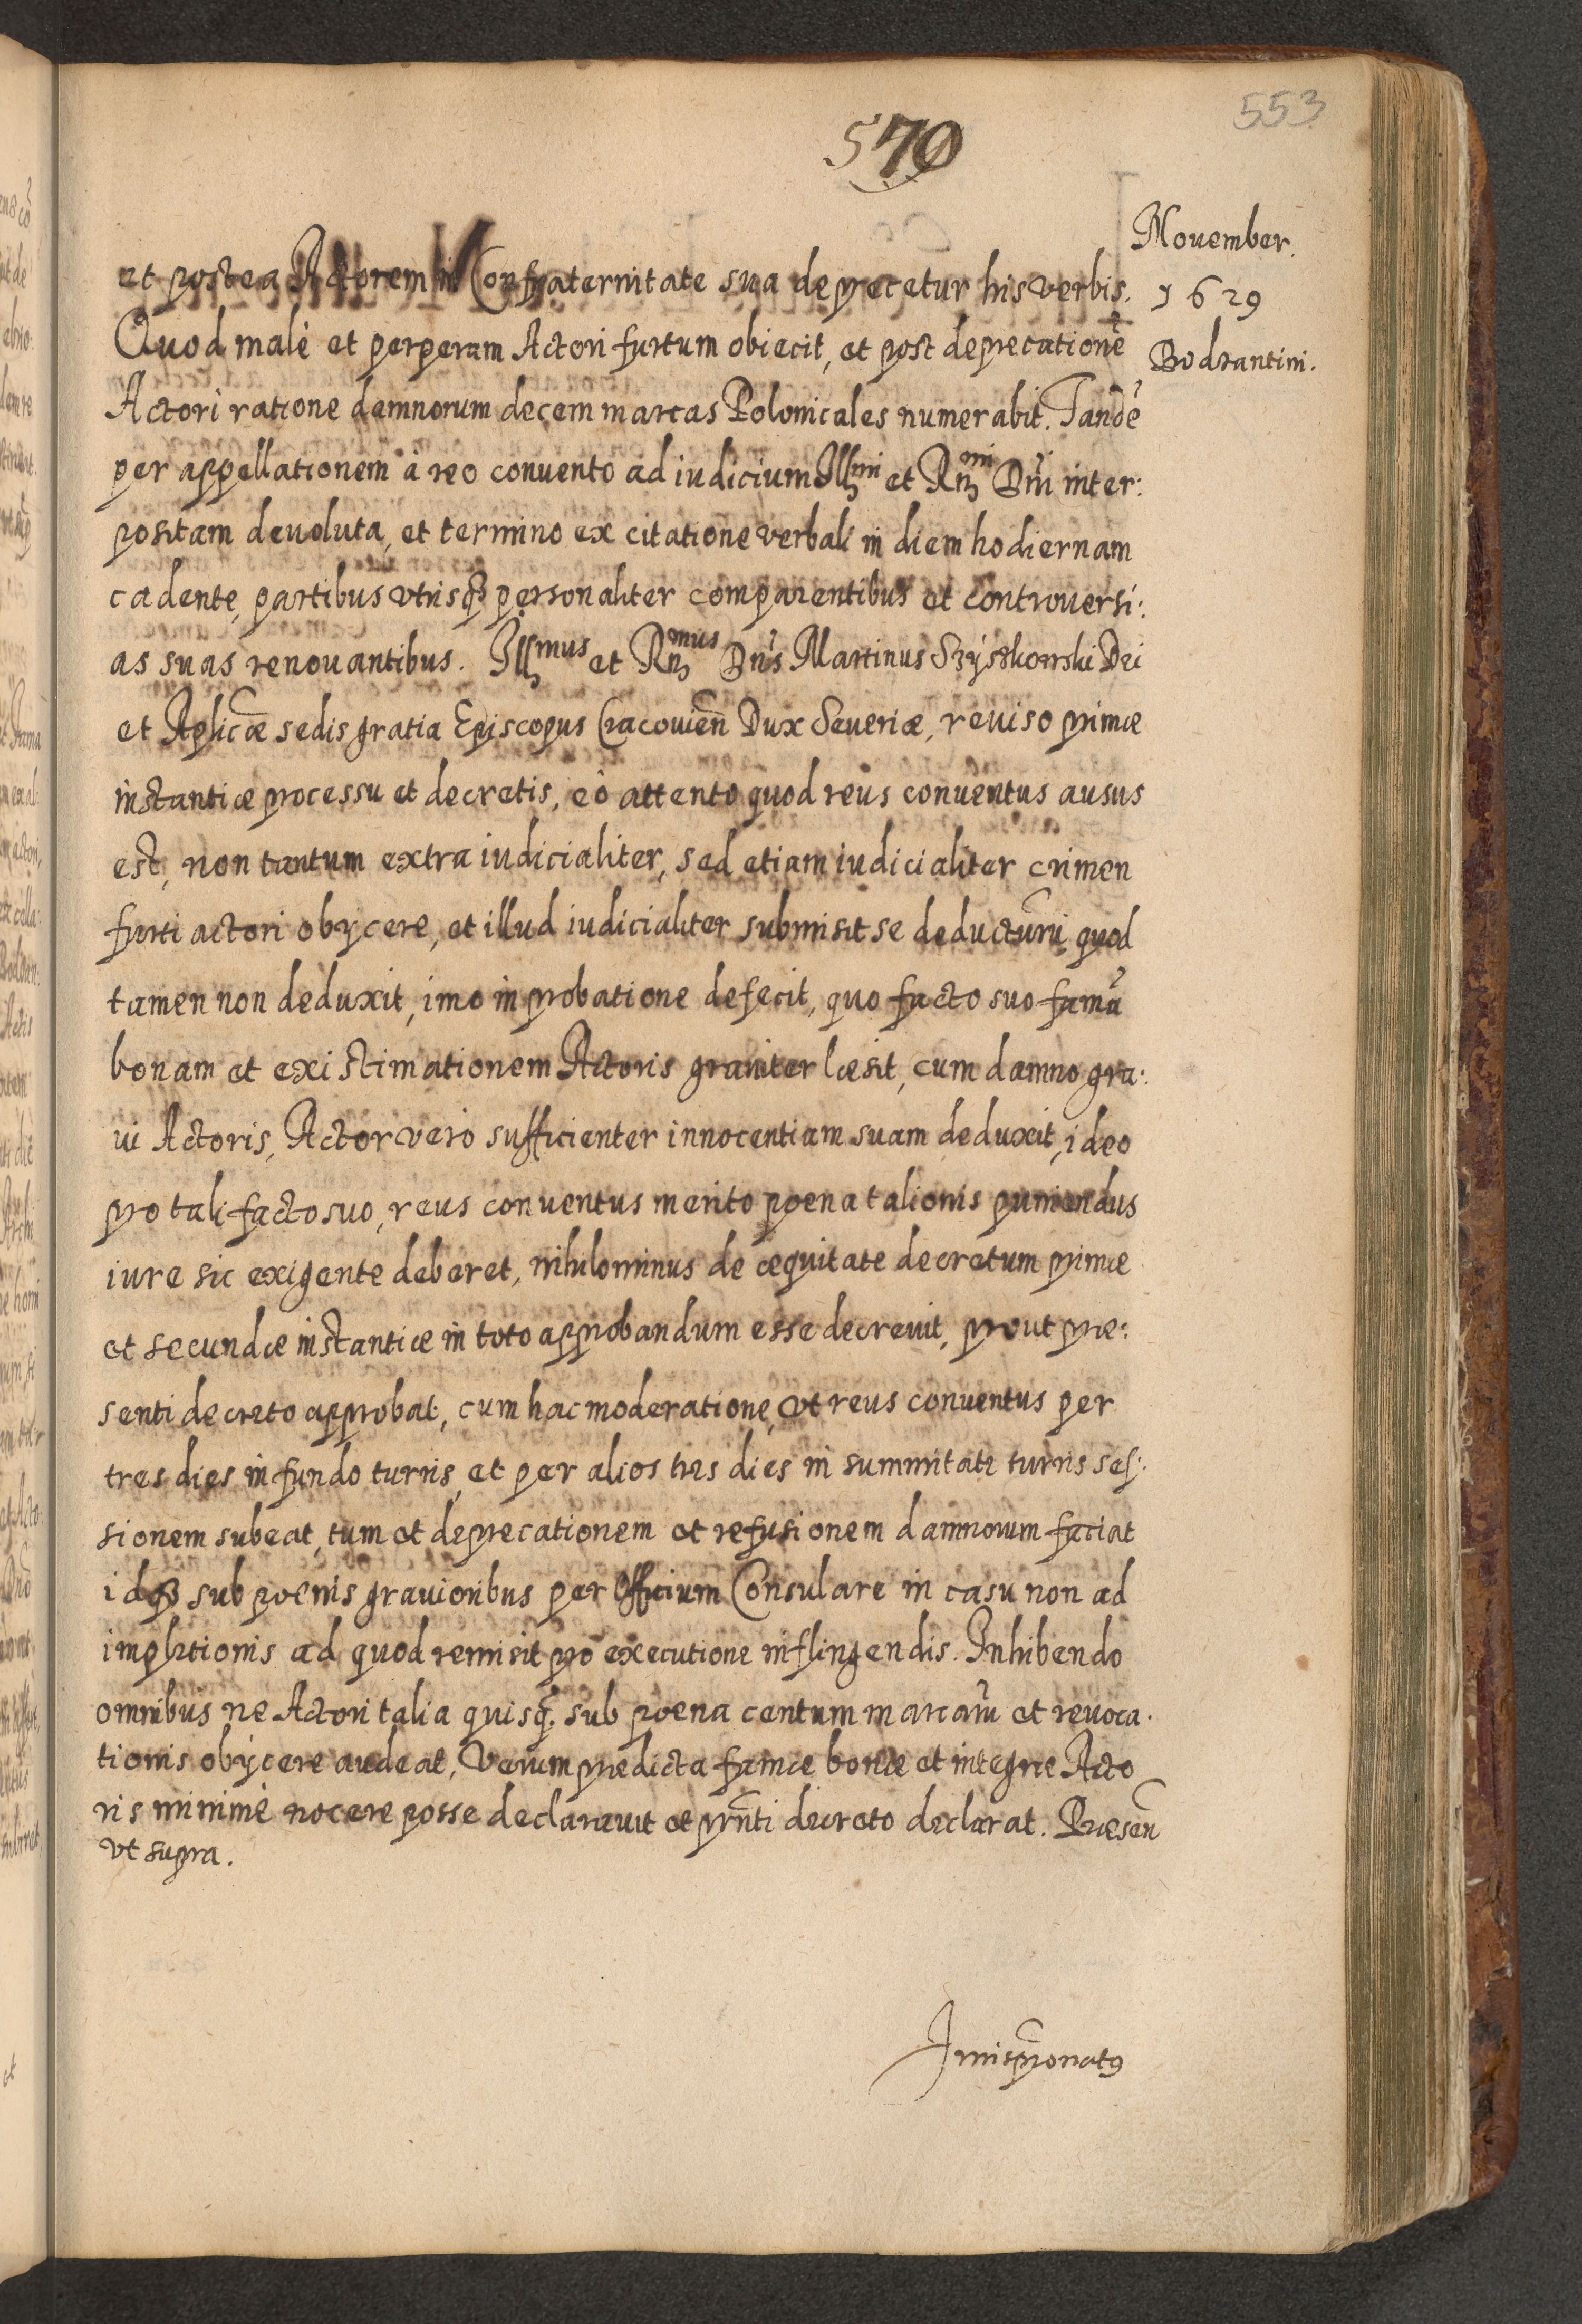 553
570
Nouember.
1629
Bodzantini.
et postea Actorem in Confraternitate sua deprecetur his verbis.
Quod malè et perperam Actori furtum obiecit, et post deprecationē
Actori ratione damnorum decem marcas Polonicales numerabit. Tandē
per appellationem à reo conuento ad iudicium Illmi et Rmi Dni inter:
positam deuoluta, et termino ex citatione verbali in diem hodiernam
cadente, partibus vtrisq3 personaliter comparentibus et controuersi:
as suas renouantibus. Illmus et Rmus Dn̄s Martinus Szyszkowski Dei
et Aplicæ sedis gratia Episcopus Cracouien̄ Dux Seueriæ, reuiso primæ
instantiæ processu et decretis, eò attento quod reus conuentus ausus
est, non tantum extra iudicialiter, sed etiam iudicialiter crimen
furti actori obÿcere, et illud iudicialiter submisit se deducturū, quod
tamen non deduxit, imo in probatione defecit, quo facto suo famā
bonam et existimationem Actoris grauiter læsit, cum damno gra:
ui Actoris, Actor verò sufficienter innocentiam suam deduxit, ideo
pro tali facto suo, reus conuentus merito poena talionis puniendus
iure sic exigente deberet, nihilominus de æquitate decretum primæ
et secundæ instantiæ in toto approbandum esse decreuit, prout præ:
senti decreto approbat, cum hac moderatione, vt reus conuentus per
tres dies in fundo turris, et per alios tres dies in summitate turris ses:
sionem subeat, tum et deprecationem et refusionem damnorum faciat
idq3 sub poenis grauioribus per Officium Consulare in casu non ad
impletionis ad quod remisit pro executione inflingendis. Inhibendo
omnibus ne Actori talia quisq. sub poena centum marcarū et reuoca.
tionis obÿcere audeat, Verum prædicta famæ bonæ et integræ Acto
ris minimè nocere posse declarauit et pr̄nti decreto declarat. Præsen̄
vt supra.